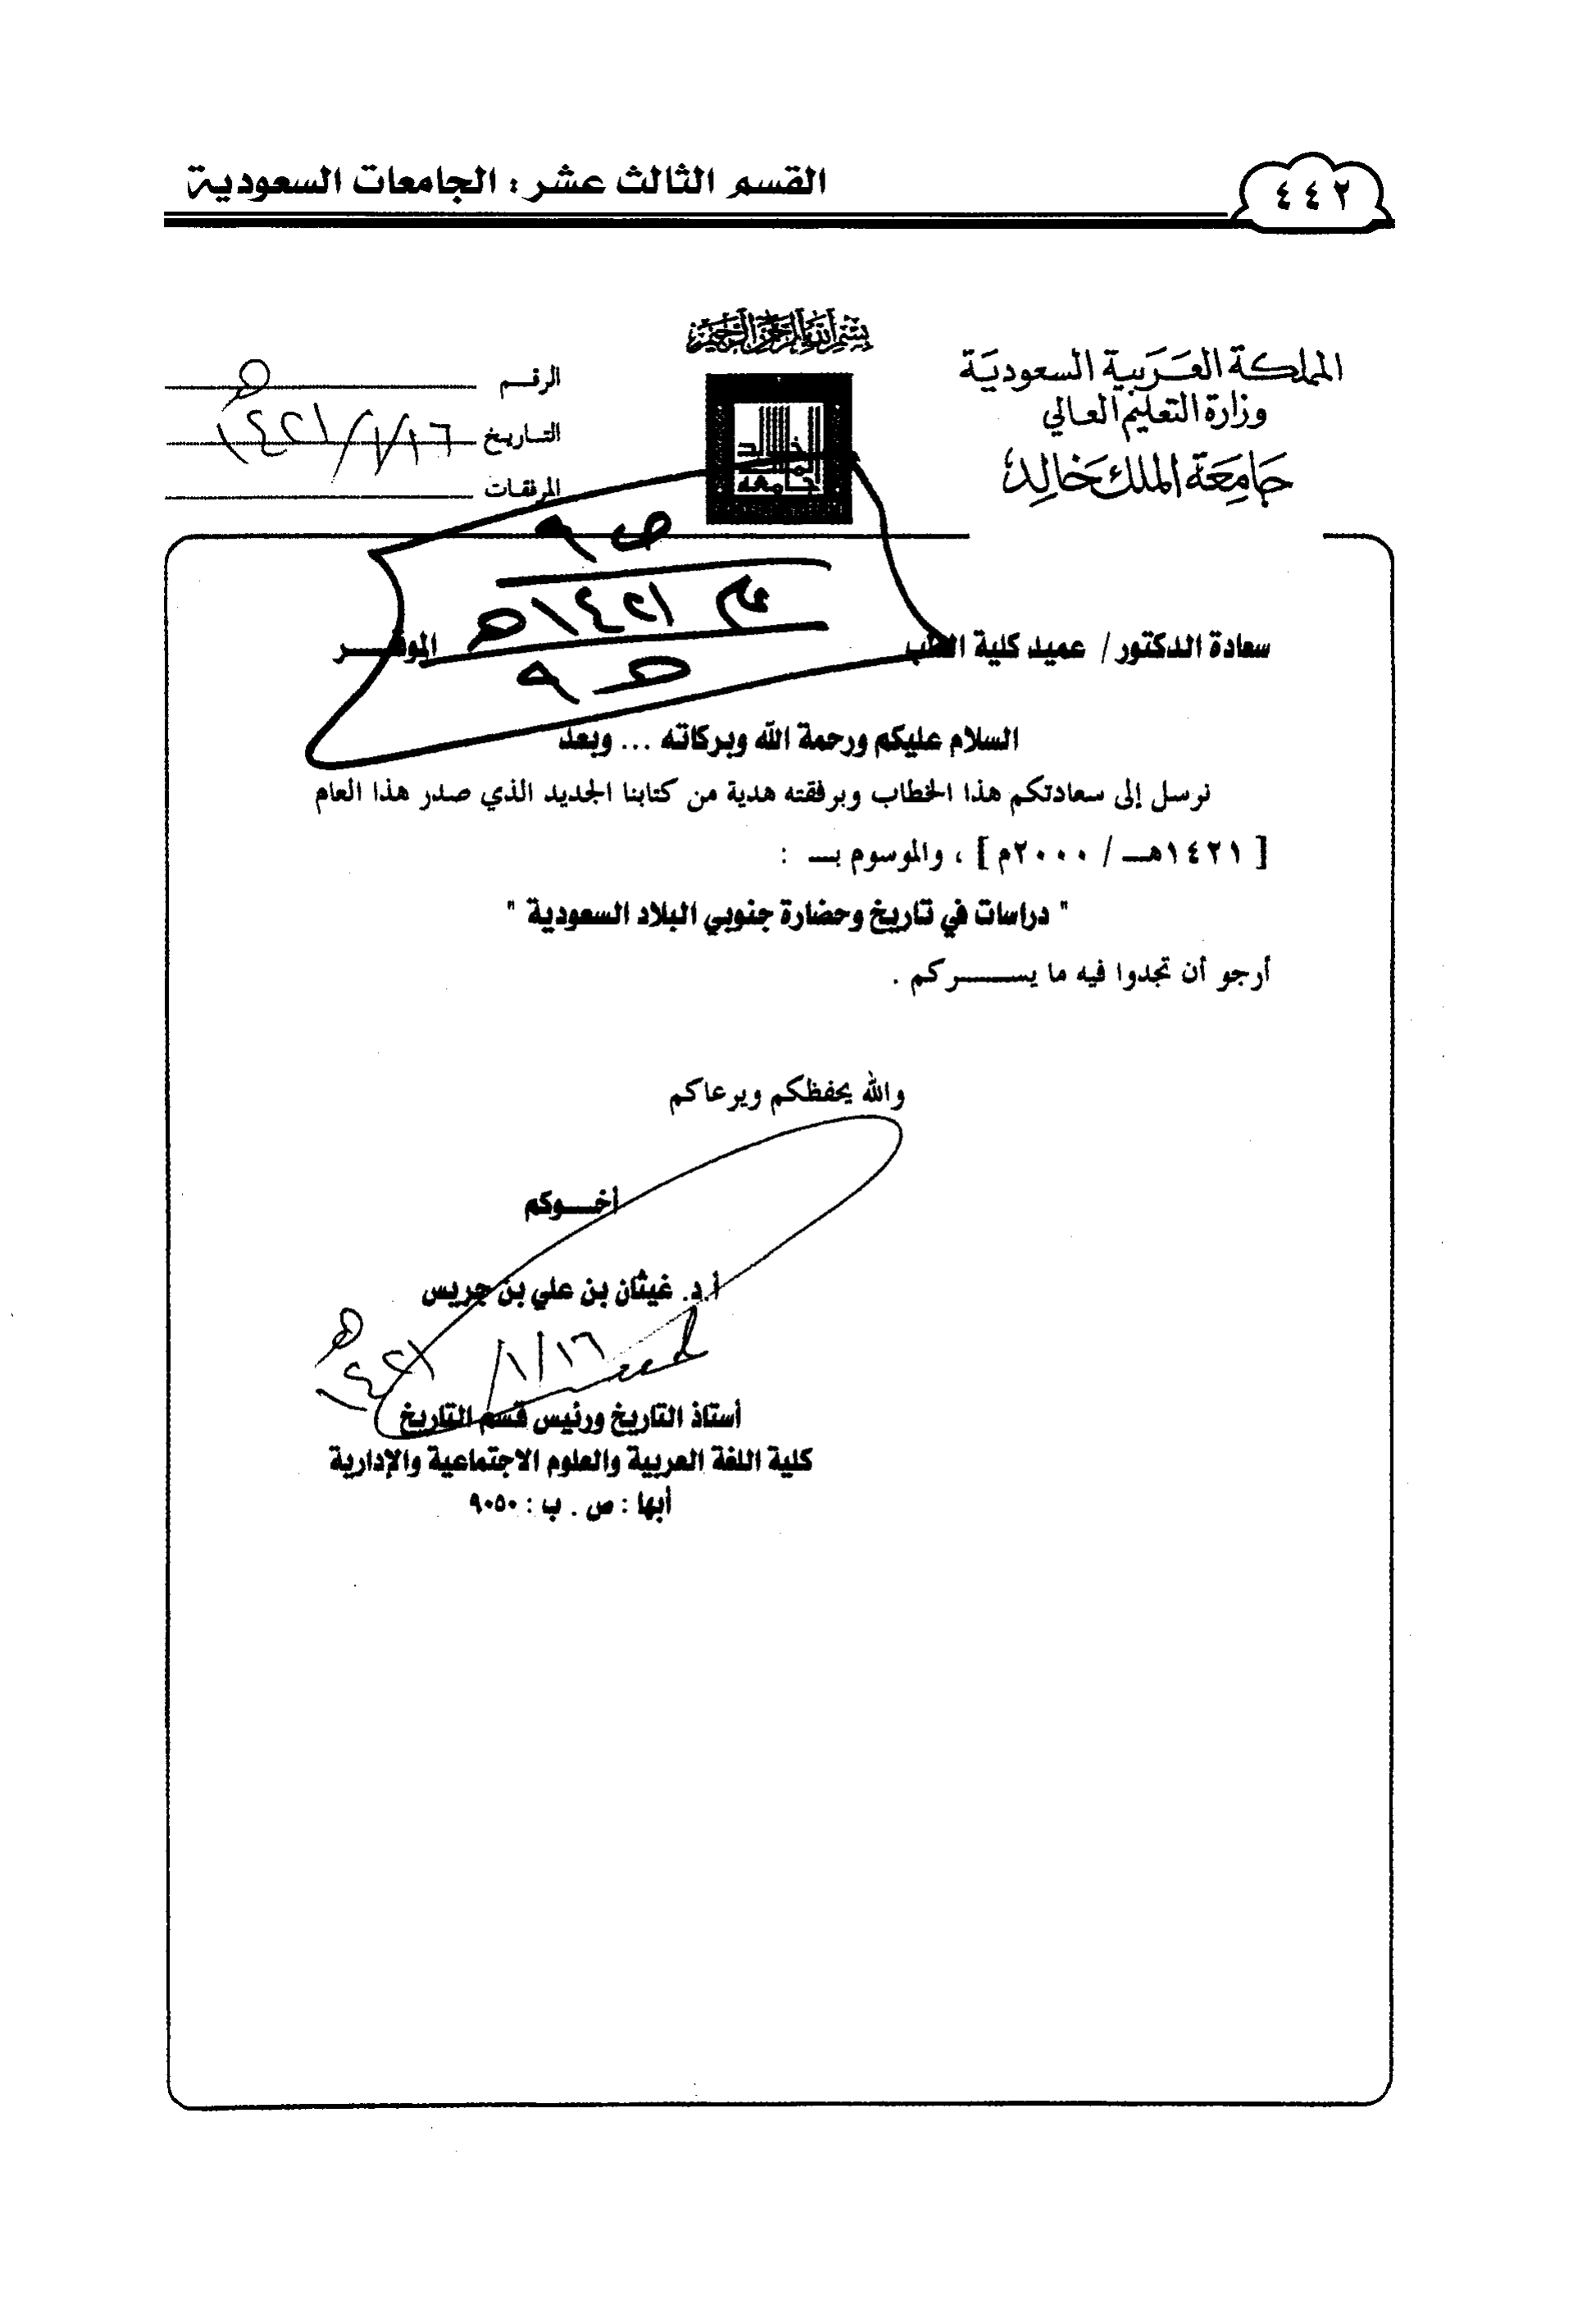 القسم الثالث عشر : الجامعات السعودية
٤٤٢
بسم الله الرحمن الرحيم
المملكة العربية السعودية
وزارة التعليم العالي
جامعة الملك خالد
الرقــم
التـاريـخ ١٤٢١/١/١٦ هـ
المرفقـات
ص ٩
عام ١٤٢١هـ
سعادة الدكتور / عميد كلية الطب الموقـــر
السلام عليكم ورحمة الله وبركاته ... وبعد
نرسل إلى سعادتكم هذا الخطاب وبرفقته هدية من كتابنا الجديد الذي صدر هذا العام
[ ١٤٢١هـــ / ٢٠٠٠م ] ، والموسوم بـــ :
" دراسات في تاريخ وحضارة جنوبي البلاد السعودية "
أرجو أن تجدوا فيه ما يســــــركم .
والله يحفظكم ويرعاكم
أخـــوكم
أ.د. غيثان بن علي بن جريس
١٤٢١/١/١٦ هـ
أستاذ التاريخ ورئيس قسم التاريخ
كلية اللغة العربية والعلوم الاجتماعية والإدارية
أبها : ص . ب : ٩٠٥٠